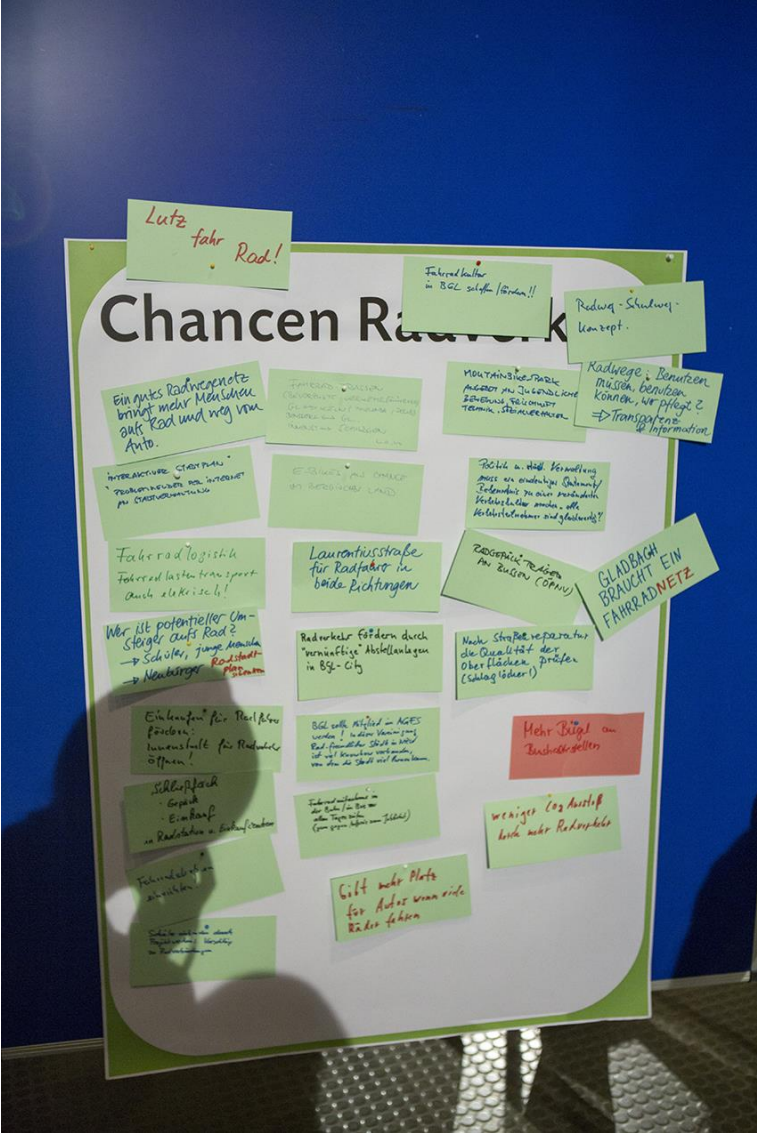 Lutz
fahr
Rad!
Fahrradkultur
in BGL schaffen/fördern!!
Radweg-Schulweg-
Konzept.
Chancen Radverk
Ein gutes Radwegenetz
bringt mehr Menschen
aufs Rad und weg vom
Auto.
FAHRRAD
MOUNTAINBIKEPARK
ANGEBOT AN JUGENDLICHE
BEWEGUNG, FRISCHLUFT
TECHNIK, SOZIALVERHALTEN
Radwege: Benutzen
müssen, benutzen
können, wer pflegt?
⇒ Transparenz
Information
INTERAKTIVER STADTPLAN
PROBLEMMELDER PER INTERNET
AN STADTVERWALTUNG
E-BIKES
CHANCE
IM BERGISCHEN LAND
Politik u. städt. Verwaltung
muss ein eindeutiges Statement/
Bekenntnis zu einer veränderten
Verkehrskultur machen - alle
Verkehrsteilnehmer sind gleichwertig!
Fahrradlogistik
Fahrradlastentransport
auch elektrisch!
Laurentiusstraße
für Radfahrer in
beide Richtungen
RADGEPÄCKTRÄGER
AN BUSSEN (ÖPNV)
GLADBACH
BRAUCHT EIN
FAHRRADNETZ
Wer ist potentieller Um-
steiger aufs Rad?
→ Schüler, junge Menschen
→ Neubürger Radstadt-
plan
schenken
Radverkehr fördern durch
"vernünftige" Abstellanlagen
in BGL-City
Nach Straßenreparatur
die Qualität der
Oberflächen prüfen
(Schlaglöcher!)
Einkaufen für Radfahrer
fördern:
Innenstadt für Radverkehr
öffnen!
BGL sollte Mitglied im AGFS
werden! In dieser Vereinigung
Rad-freundlicher Städte in NRW
ist viel Knowhow vorhanden,
von dem die Stadt viel
Mehr Bügel an
Bushaltestellen
Schließfach
· Gepäck
· Einkauf
in Radstation u. Einkaufszentren
Fahrradmitnahme in
der Bahn/im Bus zu
allen Tageszeiten
weniger CO2 Ausstoß
durch mehr Radverkehr
Fahrradstraßen
einrichten
Gibt mehr Platz
für Autos wenn viele
Räder fahren